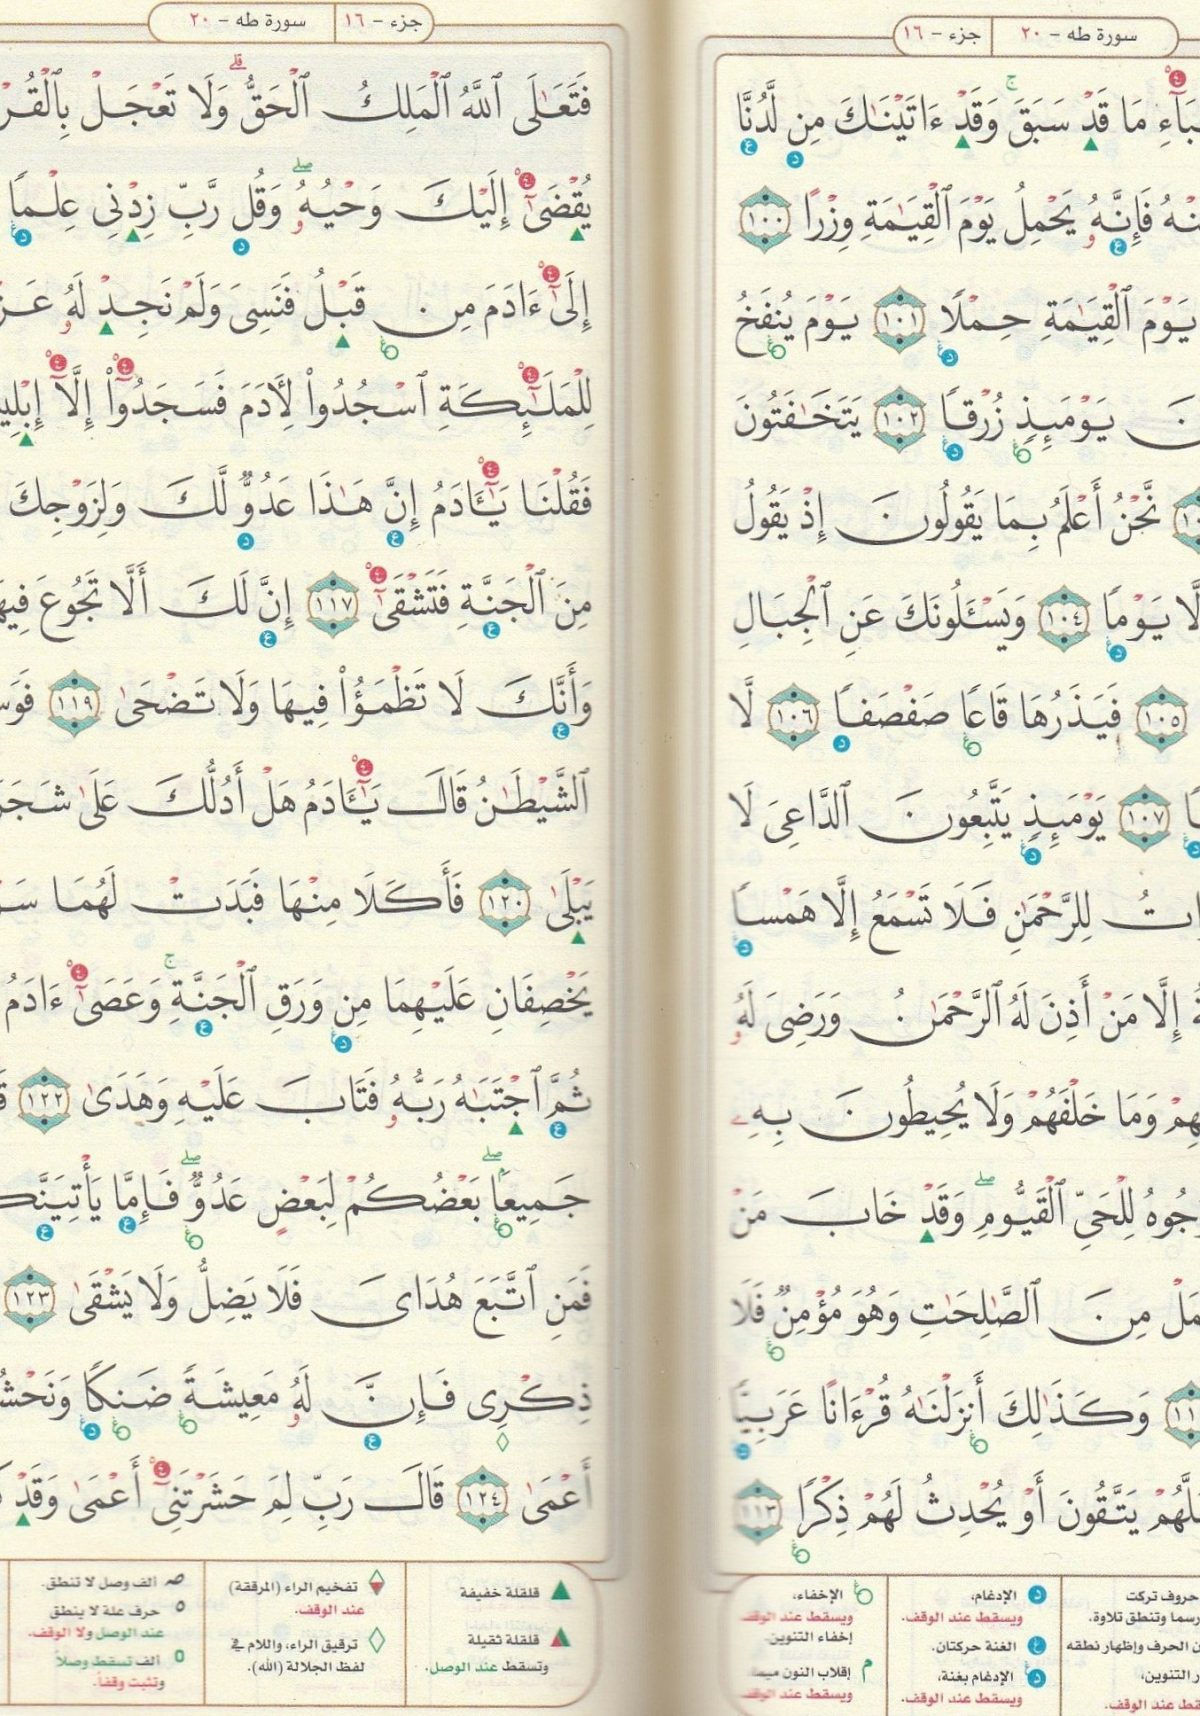 سورة طه - ٢٠ جزء - ١٦
مَا قَدْ سَبَقَ وَقَدْ ءَاتَيْنَٰكَ مِن لَّدُنَّا
فَإِنَّهُۥ يَحْمِلُ يَوْمَ ٱلْقِيَٰمَةِ وِزْرًا ١٠٠
يَوْمَ ٱلْقِيَٰمَةِ حِمْلًا ١٠١ يَوْمَ يُنفَخُ
يَوْمَئِذٍ زُرْقًا ١٠٢ يَتَخَٰفَتُونَ
نَّحْنُ أَعْلَمُ بِمَا يَقُولُونَ إِذْ يَقُولُ
يَوْمًا ١٠٤ وَيَسْـَٔلُونَكَ عَنِ ٱلْجِبَالِ
١٠٥ فَيَذَرُهَا قَاعًا صَفْصَفًا ١٠٦ لَّا
١٠٧ يَوْمَئِذٍ يَتَّبِعُونَ ٱلدَّاعِىَ لَا
لِلرَّحْمَٰنِ فَلَا تَسْمَعُ إِلَّا هَمْسًا
إِلَّا مَنْ أَذِنَ لَهُ ٱلرَّحْمَٰنُ وَرَضِىَ لَهُۥ
وَمَا خَلْفَهُمْ وَلَا يُحِيطُونَ بِهِۦ
لِلْحَىِّ ٱلْقَيُّومِ وَقَدْ خَابَ مَنْ
مِنَ ٱلصَّٰلِحَٰتِ وَهُوَ مُؤْمِنٌ فَلَا
وَكَذَٰلِكَ أَنزَلْنَٰهُ قُرْءَانًا عَرَبِيًّا
يَتَّقُونَ أَوْ يُحْدِثُ لَهُمْ ذِكْرًا ١١٣
حروف تركت
رسما وتنطق تلاوة.
الحرف وإظهار نطقه
التنوين،
عند الوقف.
الإدغام،
ويسقط عند الوقف.
الغنة حركتان.
الإدغام بغنة،
ويسقط عند الوقف.
الإخفاء،
ويسقط عند الوقف
إخفاء التنوين.
إقلاب النون ميما
ويسقط عند الوقف
جزء - ١٦ سورة طه - ٢٠
فَتَعَٰلَى ٱللَّهُ ٱلْمَلِكُ ٱلْحَقُّ وَلَا تَعْجَلْ
يُقْضَىٰٓ إِلَيْكَ وَحْيُهُۥ وَقُل رَّبِّ زِدْنِى عِلْمًا
إِلَىٰٓ ءَادَمَ مِن قَبْلُ فَنَسِىَ وَلَمْ نَجِدْ لَهُۥ
لِلْمَلَٰٓئِكَةِ ٱسْجُدُوا۟ لِأَدَمَ فَسَجَدُوٓا۟ إِلَّآ
فَقُلْنَا يَٰٓـَٔادَمُ إِنَّ هَٰذَا عَدُوٌّ لَّكَ وَلِزَوْجِكَ
مِنَ ٱلْجَنَّةِ فَتَشْقَىٰٓ ١١٧ إِنَّ لَكَ أَلَّا تَجُوعَ
وَأَنَّكَ لَا تَظْمَؤُا۟ فِيهَا وَلَا تَضْحَىٰ ١١٩
ٱلشَّيْطَٰنُ قَالَ يَٰٓـَٔادَمُ هَلْ أَدُلُّكَ عَلَىٰ
يَبْلَىٰ ١٢٠ فَأَكَلَا مِنْهَا فَبَدَتْ لَهُمَا
يَخْصِفَانِ عَلَيْهِمَا مِن وَرَقِ ٱلْجَنَّةِ وَعَصَىٰٓ ءَادَمُ
ثُمَّ ٱجْتَبَٰهُ رَبُّهُۥ فَتَابَ عَلَيْهِ وَهَدَىٰ ١٢٢
جَمِيعًۢا بَعْضُكُمْ لِبَعْضٍ عَدُوٌّ فَإِمَّا
فَمَنِ ٱتَّبَعَ هُدَاىَ فَلَا يَضِلُّ وَلَا يَشْقَىٰ ١٢٣
ذِكْرِى فَإِنَّ لَهُۥ مَعِيشَةً ضَنكًا
أَعْمَىٰ ١٢٤ قَالَ رَبِّ لِمَ حَشَرْتَنِىٓ أَعْمَىٰ وَقَدْ
قلقلة خفيفة
قلقلة ثقيلة
وتسقط عند الوصل.
تفخيم الراء (المرققة)
عند الوقف.
ترقيق الراء، واللام في
لفظ الجلالة (الله).
ألف وصل لا تنطق.
حرف علة لا ينطق
عند الوصل ولا الوقف.
ألف تسقط وصلاً
وتثبت وقفاً.